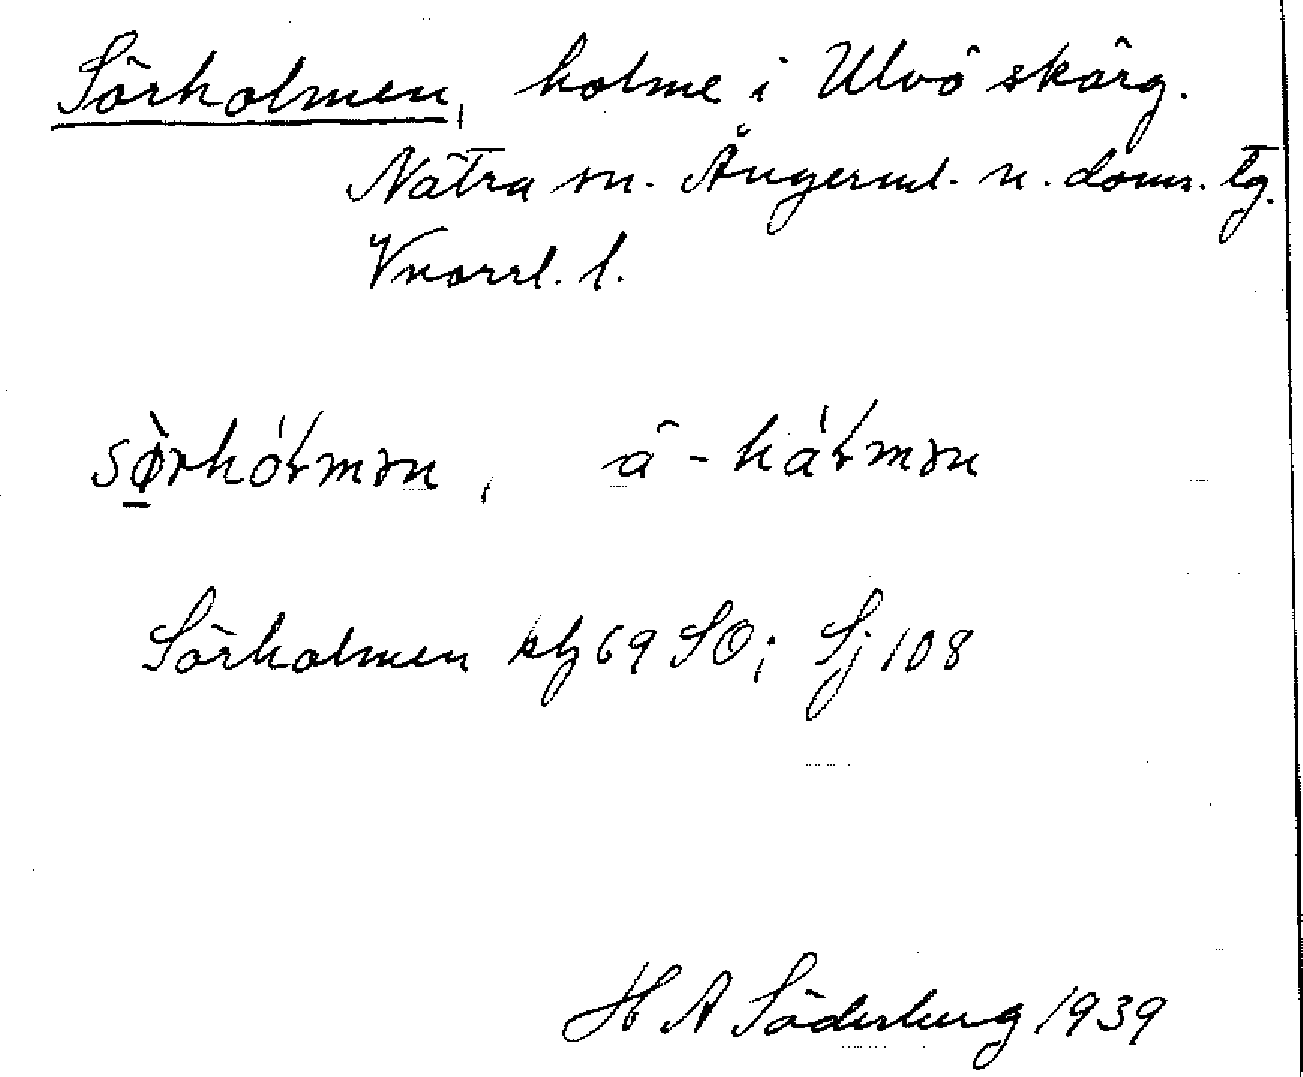 Sörholmen, holme i Ulvö skärg.
Nätra sn. Ångerml. n. doms. tg.
Vnorrl. l.
sø̀rhóɫmən, ä - háɫmən
Sörholmen kbl 69 SO; Sj 108
H A Söderberg 1939